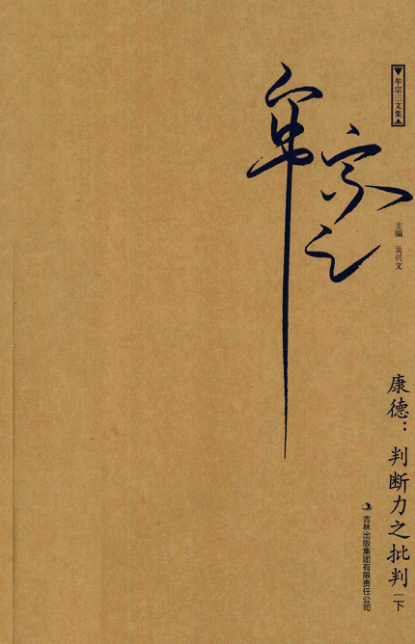 牟宗三文集
牟宗三
主编 吴兴文
康德：判断力之批判 一下
吉林出版集团有限责任公司